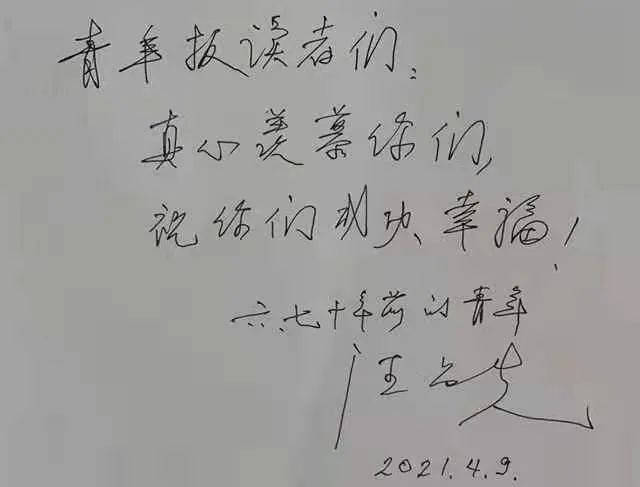 青年报读者们：
真心羡慕你们，
祝你们成功、幸福！
六、七十年前的青年
汪品先
2021.4.9.